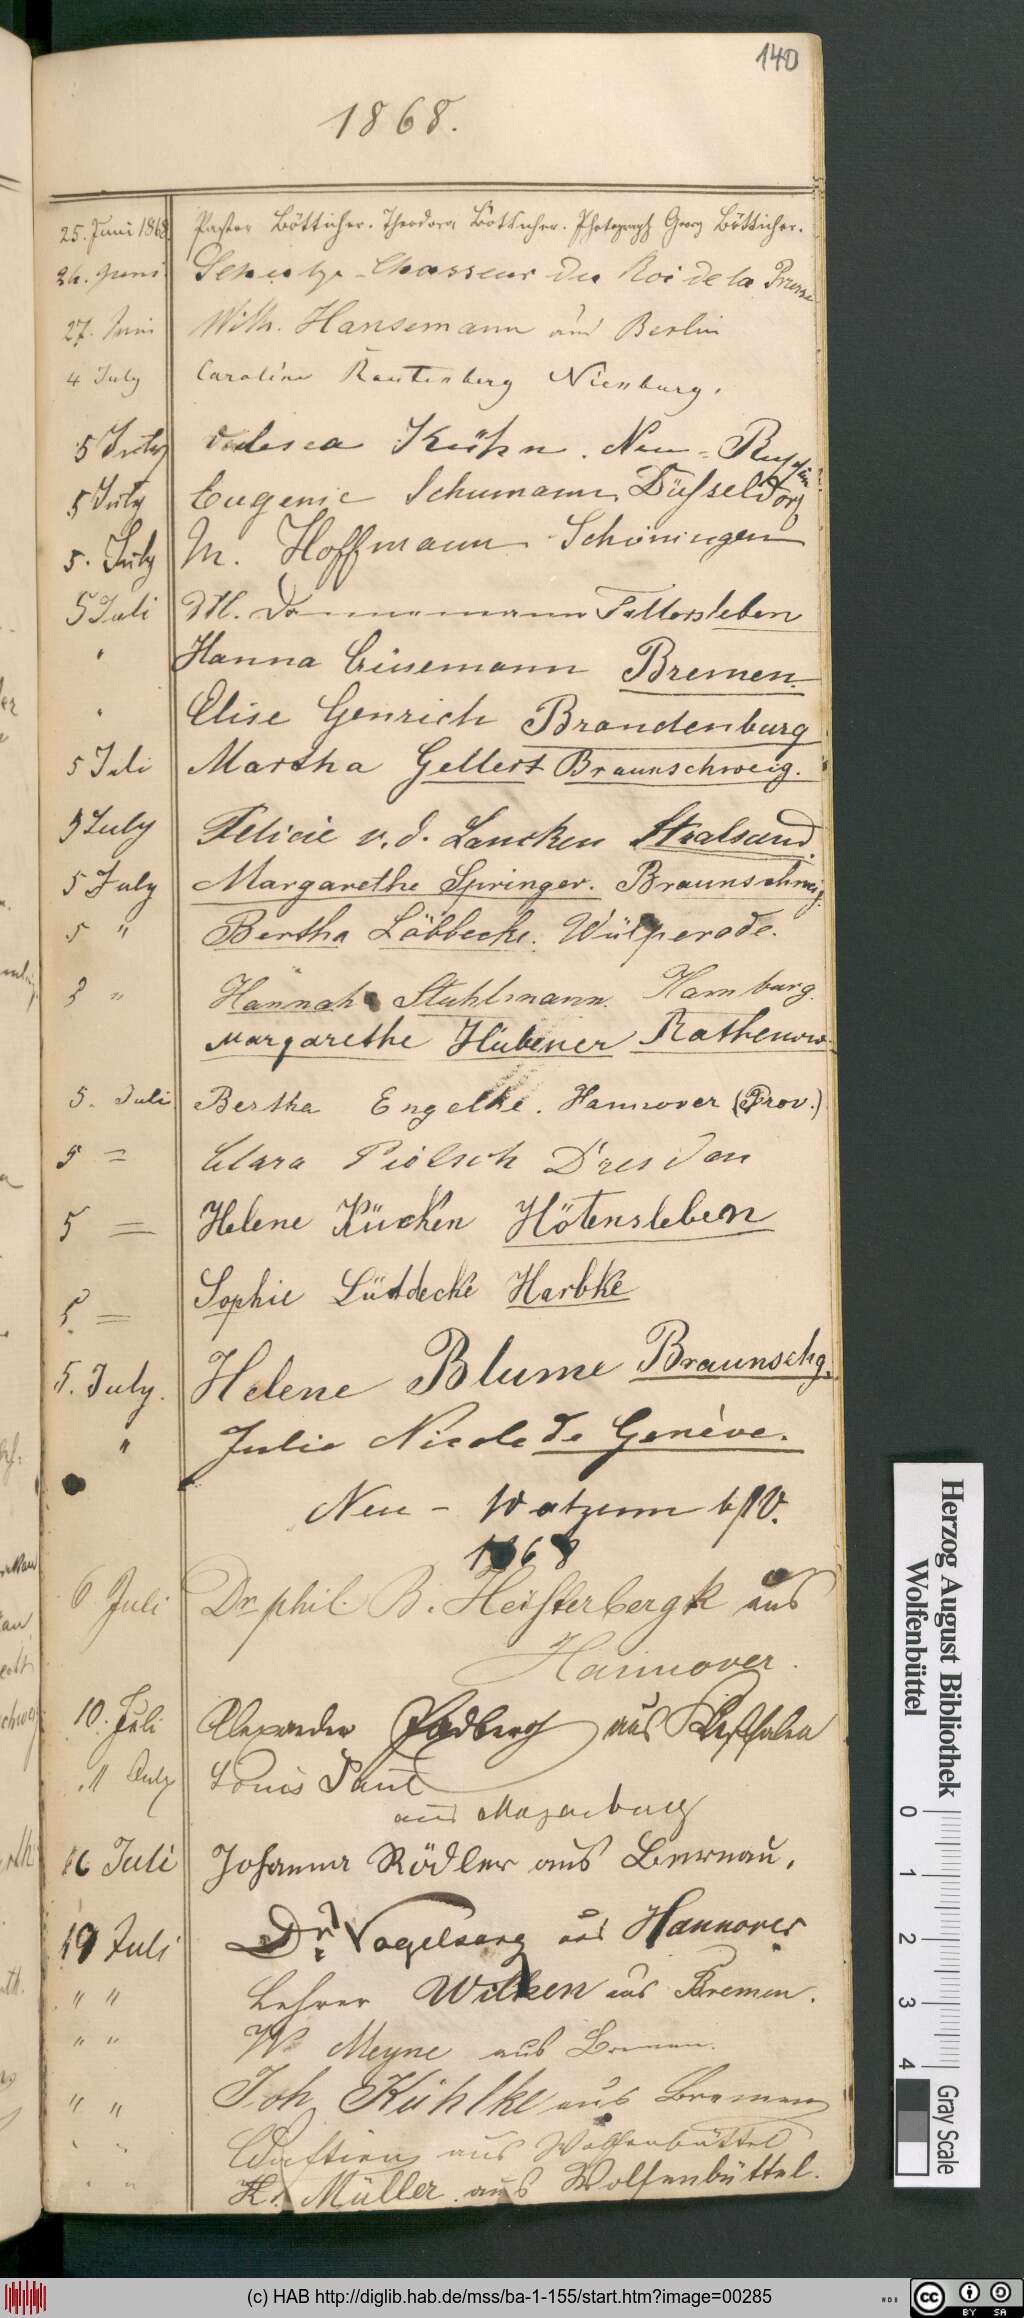 140
1868.
25. Juni 1868. Pastor Bötticher. Theodora Bötticher. Photograph Georg Bötticher.
26. Juni Schulze Chasseur du Roi de la Prusse
27. Juni Wilh. Hansemann aus Berlin
4 July Caroline Rautenberg Nienburg.
5 July Valesca Kühn. Neu-Ruppin
5 July Eugenie Schumann, Düsseldorf
5. July M. Hoffmann Schöningen
5 Juli M. Fallersleben
" Hanna Bremen.
" Elise Genrich Brandenburg
5 Juli Martha Gellert Braunschweig.
5 July Felicie v. d. Lancken Stralsund.
5 July Margarethe Springer. Braunschweig.
5 " Bertha Löbbecke. Wülperode.
5 " Hannah Stuhlmann. Hamburg.
Margarethe Hübener Rathenow.
5. Juli Bertha Engelke. Hannover (Prov.)
5 = Clara Dresden
5 = Helene Kücken Hötensleben
5. = Sophie Lüddecke Harbke
5. July. Helene Blume Braunschg.
" Julie Nicole de Genève.
Neu - Watzum
1868
6 Juli Dr. phil. B. Heisterbergk aus
Hannover.
10. Juli Alexander Padberg aus Westfalen
11 July Louis Paul
aus Magdeburg
16 Juli Johanna Rödler aus Bernau.
19 Juli Dr. Vogelsang aus Hannover
" " Lehrer Wilken aus Bremen.
" " W. Meyne aus Bremen.
" " Joh Kühlke aus Bremen
" " aus Wolfenbüttel
" " H. Müller aus Wolfenbüttel.
Herzog August Bibliothek
Wolfenbüttel
0 1 2 3 4
Gray Scale
(c) HAB http://diglib.hab.de/mss/ba-1-155/start.htm?image=00285
WDB
cc BY SA